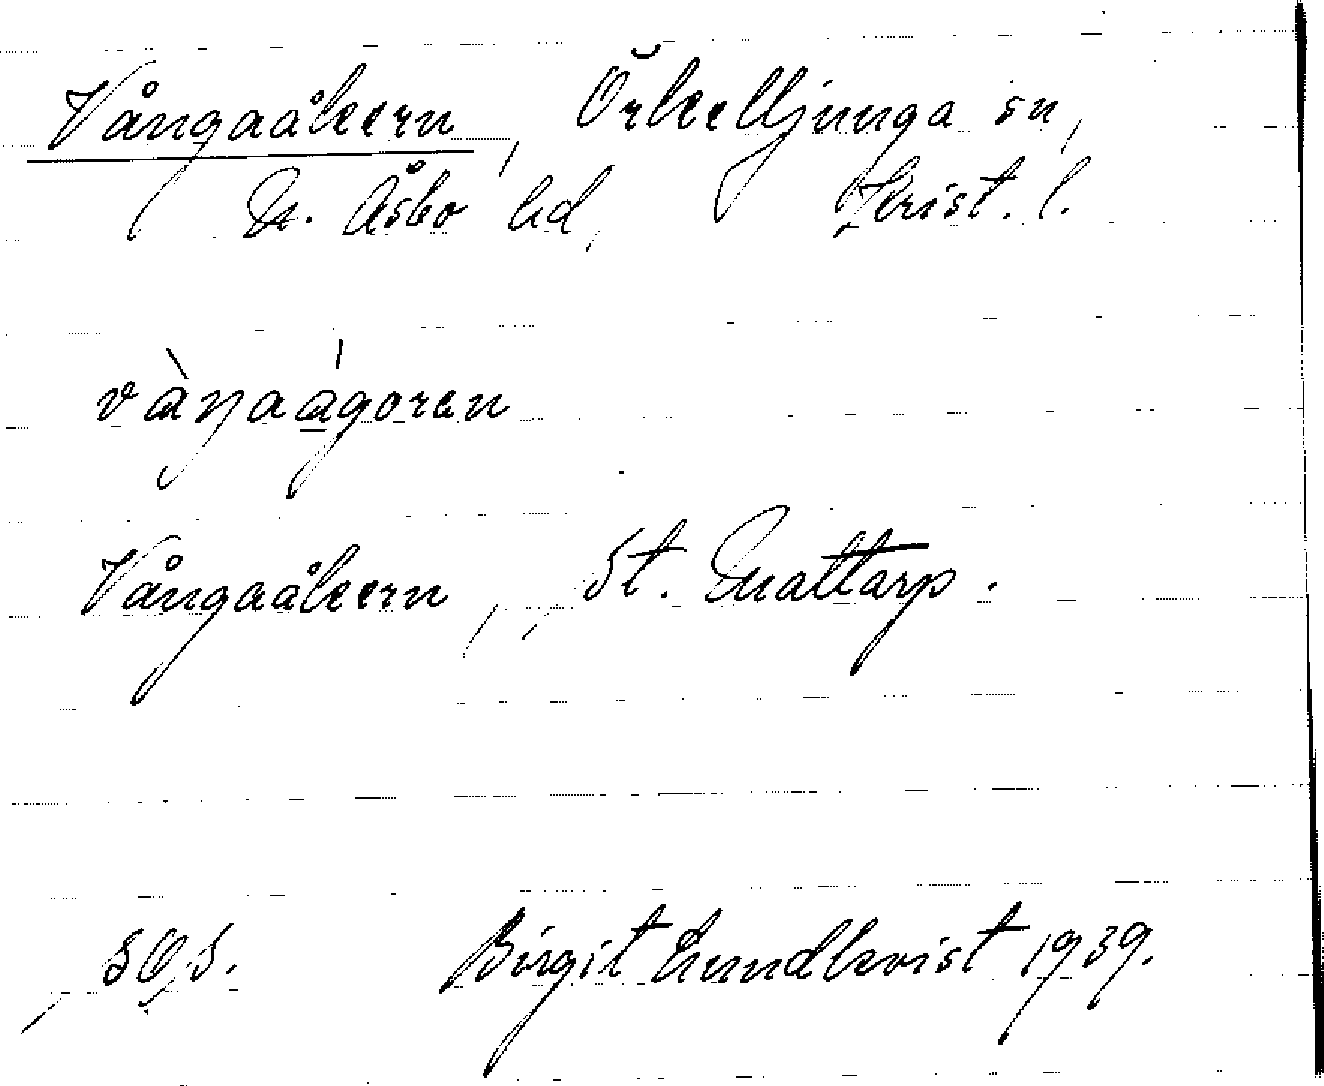 Vångaåkern, Örkelljunga sn,
N. Åsbo hd, Krist. l.
vàŋaágoren
Vångaåkern, St. Snattarp.
Birgit Lundkvist 1939.